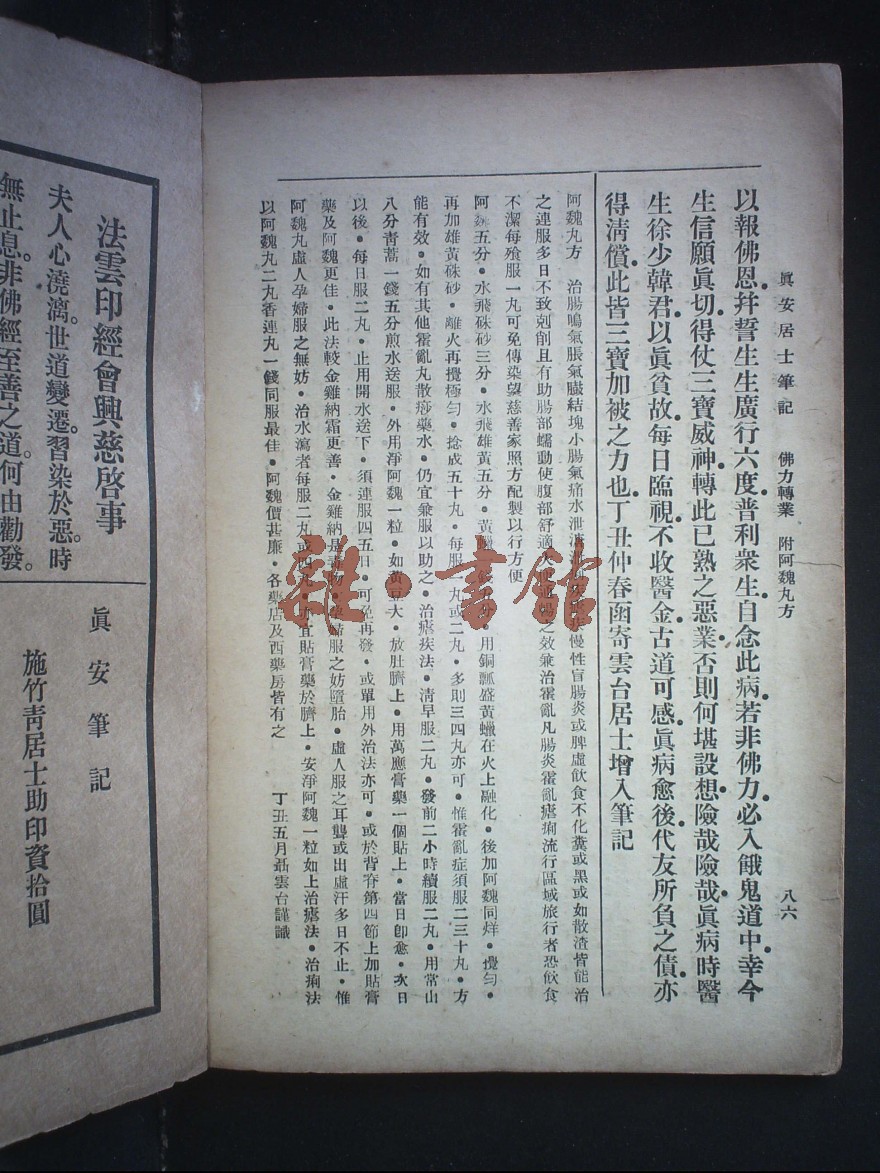 眞安居士筆記　佛力轉業　附阿魏丸方　八六
以報佛恩。幷誓生生廣行六度。普利衆生。自念此病。若非佛力。必入餓鬼道中。幸今
生信願眞切。得仗三寶威神。轉此已熟之惡業。否則何堪設想。險哉險哉。眞病時醫
生徐少韓君。以眞貧故。每日臨視。不收醫金。古道可感。眞病愈後。代友所負之債。亦
得清償。此皆三寶加被之力也。丁丑仲春函寄雲台居士增入筆記
阿魏丸方　治腸鳴氣脹氣臌結塊小腸氣痛水泄 慢性盲腸炎或脾虛飲食不化糞或黑或如散渣皆能治
之連服多日不致剋削且有助腸部蠕動使腹部舒適 之效兼治霍亂凡腸炎霍亂瘧痢流行區域旅行者恐飲食
不潔每飱服一丸可免傳染望慈善家照方配製以行方便
阿魏五分•水飛硃砂三分•水飛雄黃五分•黃蠟 •用銅瓢盛黃蠟在火上融化•後加阿魏同烊•攪勻•
再加雄黃硃砂•離火再攪極勻•捻成五十丸•每服一丸或二丸•多則三四丸亦可•惟霍亂症須服二三十丸•方
能有效•如有其他霍亂丸散痧藥水•仍宜兼服以助之•治瘧疾法•淸早服二丸•發前二小時續服二丸•用常山
八分靑蒿一錢五分煎水送服•外用淨阿魏一粒•如黃豆大•放肚臍上•用萬應膏藥一個貼上•當日卽愈•次日
以後•每日服二丸•止用開水送下•須連服四五日•可免再發•或單用外治法亦可•或於背脊第四節上加貼膏
藥及阿魏更佳•此法較金雞納霜更善•金雞納是 物•孕婦服之妨墮胎•虛人服之耳聾或出虛汗多日不止•惟
阿魏丸虛人孕婦服之無妨•治水瀉者每服二丸或四丸•亦宜貼膏藥於臍上•安淨阿魏一粒如上治瘧法•治痢法
以阿魏丸二丸香連丸一錢同服最佳•阿魏價甚廉•各藥店及西藥房皆有之　丁丑五月聶雲台謹識
法雲印經會興慈啓事
夫人心澆漓。世道變遷。習染於惡。時
無止息。非佛經至善之道。何由勸發。
眞安筆記
施竹靑居士助印資拾圓
雜·書館